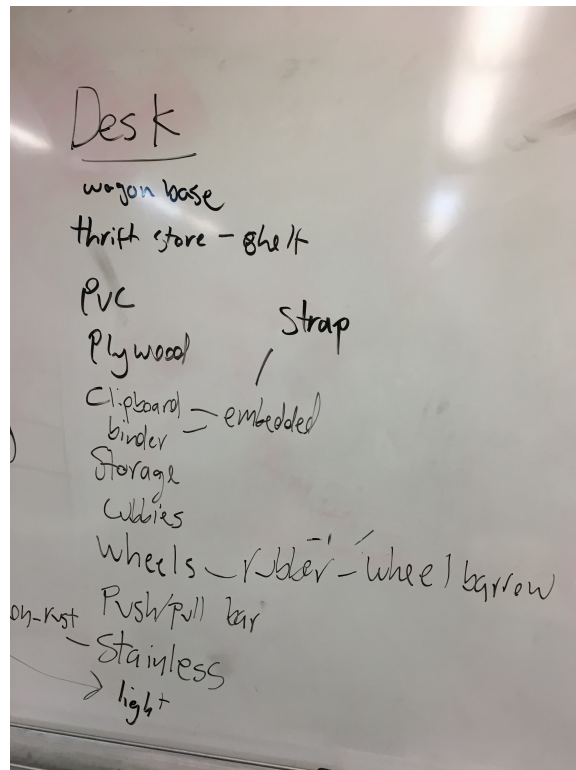 Desk
wagon base
thrift store - shelf
PVC
Strap
Plywood
Clipboard - embedded
binder
Storage
Cubbies
Wheels - rubber - wheel barrow
Push/pull bar
- Stainless
light